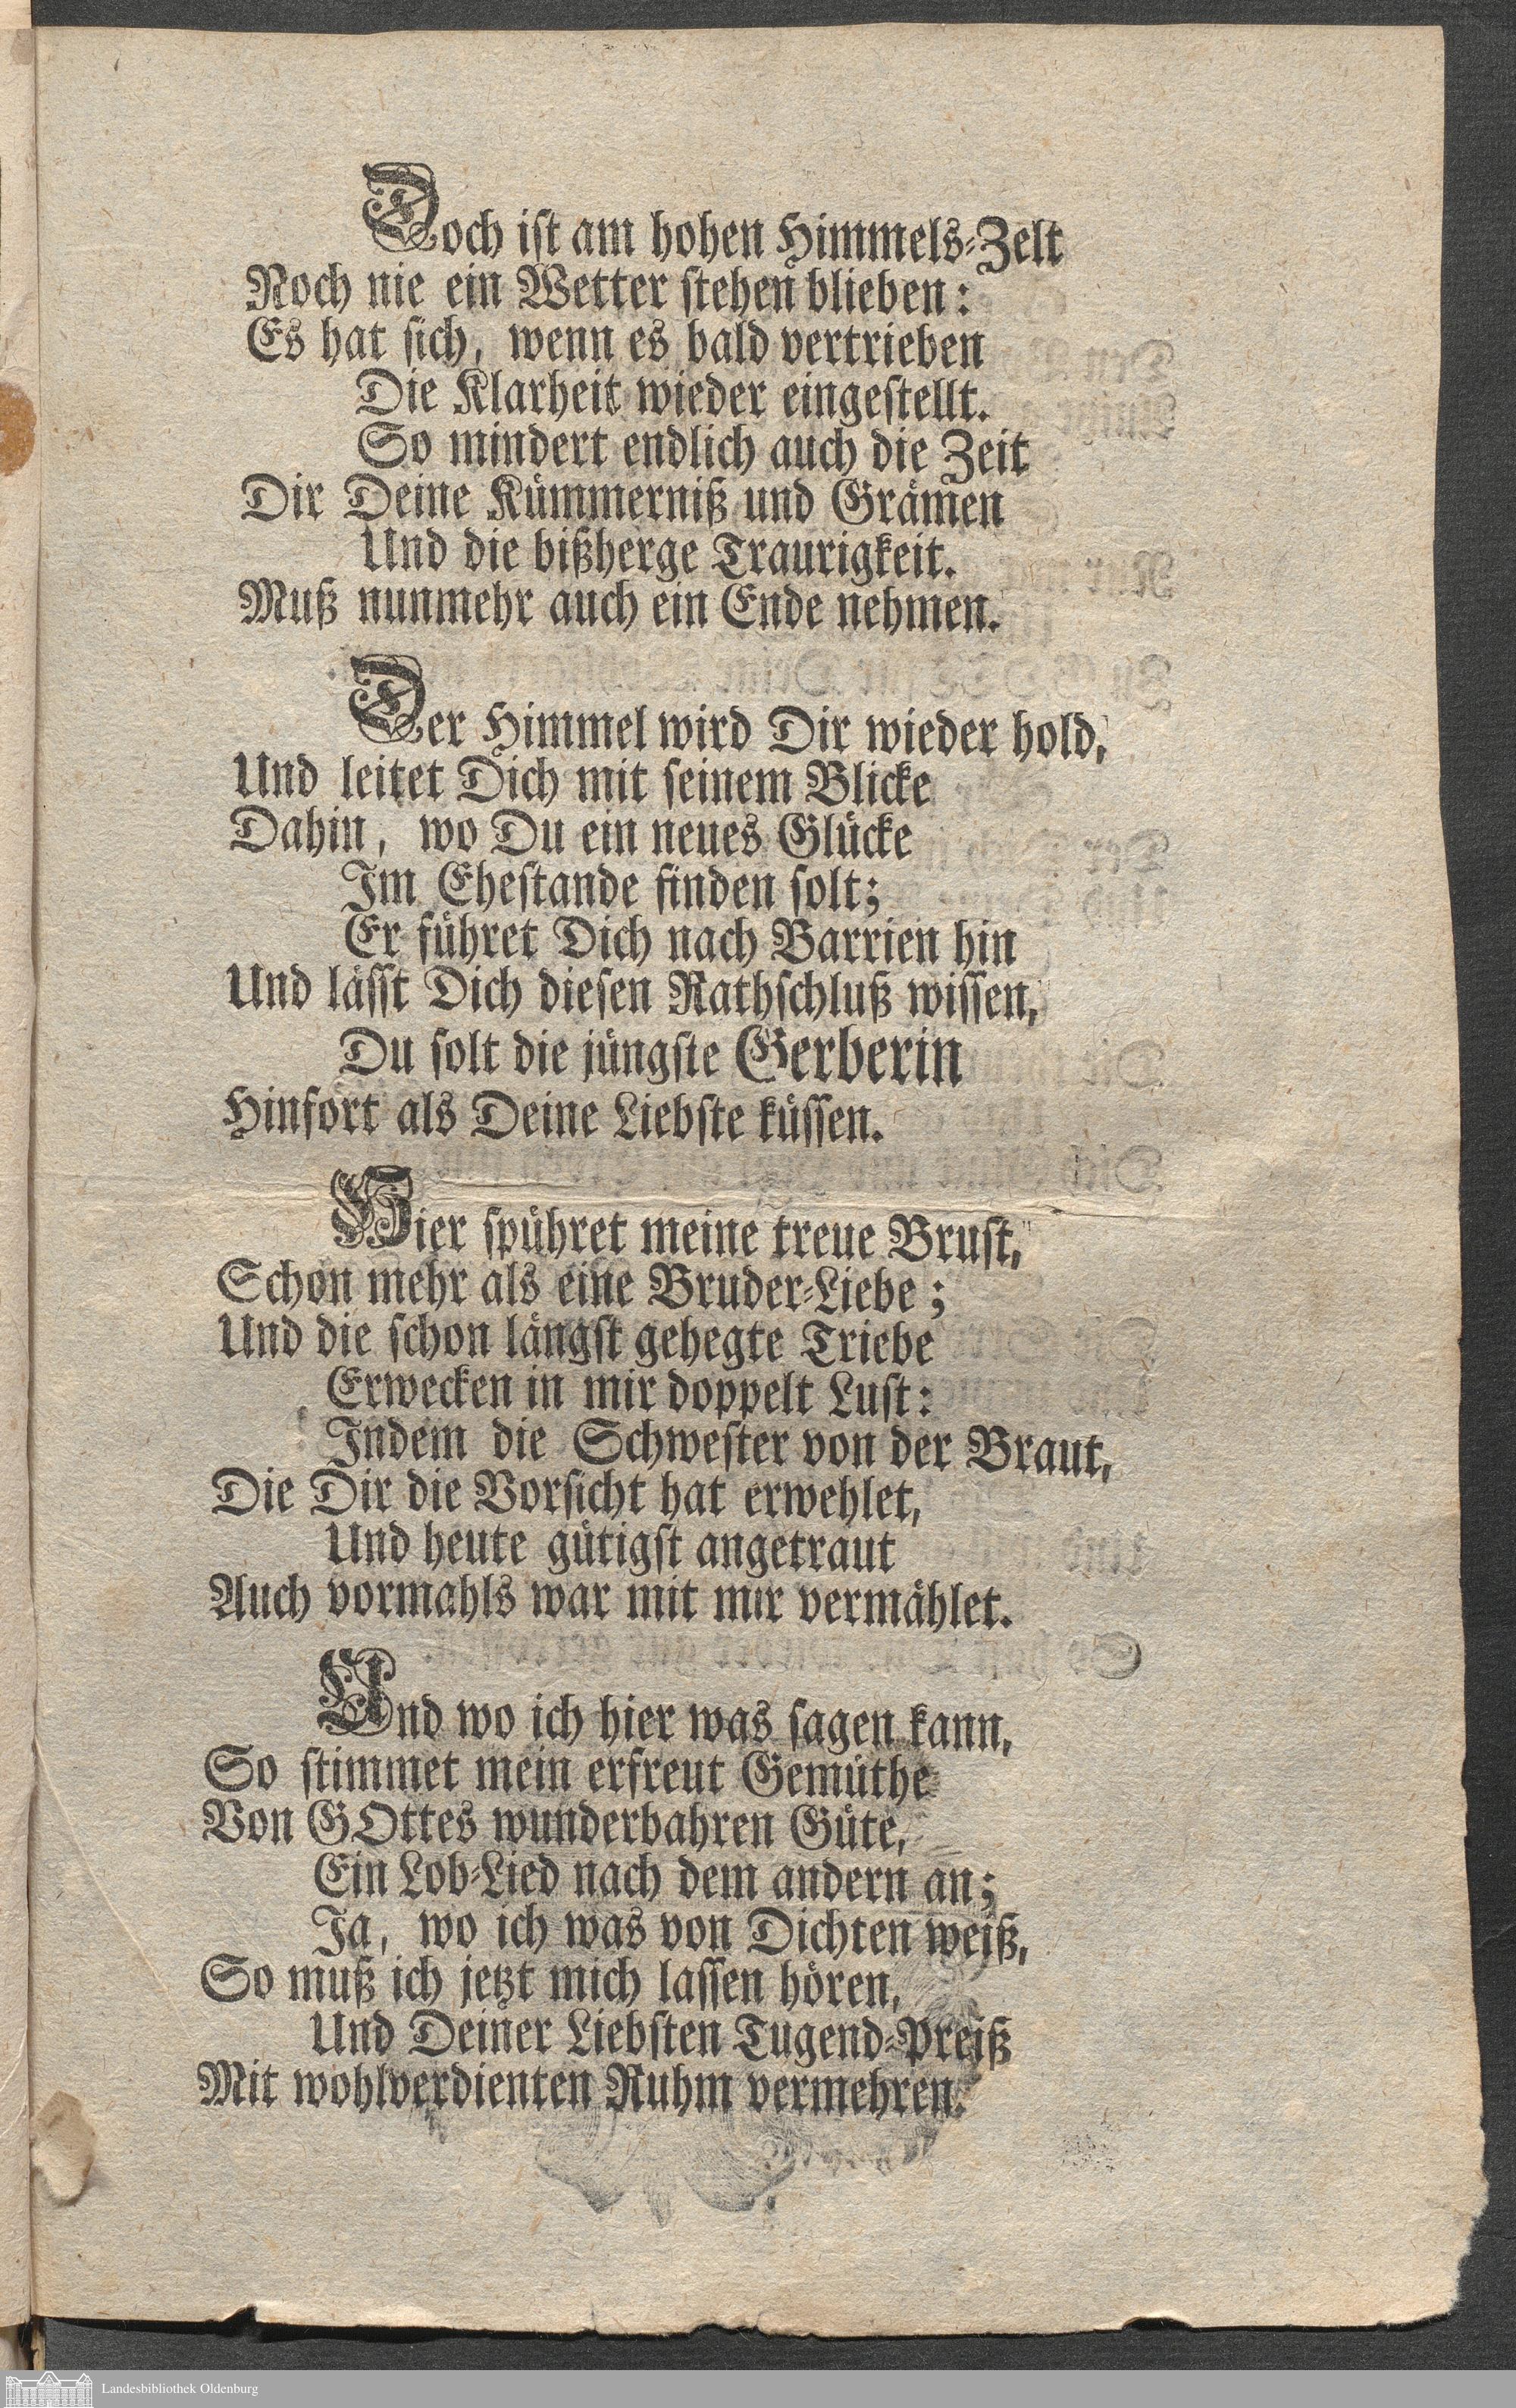 Doch ist am hohen Himmels-Zelt
Noch nie ein Wetter stehen blieben:
Es hat sich, wenn es bald vertrieben
Die Klarheit wieder eingestellt.
So mindert endlich auch die Zeit
Dir Deine Kümmerniß und Grämen
Und die bißherge Traurigkeit.
Muß nunmehr auch ein Ende nehmen.
Der Himmel wird Dir wieder hold,
Und leitet Dich mit seinem Blicke
Dahin, wo Du ein neues Glücke
Im Ehestande finden solt;
Er führet Dich nach Barrien hin
Und lässt Dich diesen Rathschluß wissen,
Du solt die jüngste Gerberin
Hinfort als Deine Liebste küssen.
Hier spühret meine treue Brust,
Schon mehr als eine Bruder-Liebe;
Und die schon längst gehegte Triebe
Erwecken in mir doppelt Lust:
Indem die Schwester von der Braut,
Die Dir die Vorsicht hat erwehlet,
Und heute gütigst angetraut
Auch vormahls war mit mir vermählet.
Und wo ich hier was sagen kann,
So stimmet mein erfreut Gemüthe
Von GOttes wunderbahren Güte,
Ein Lob-Lied nach dem andern an;
Ja, wo ich was von Dichten weiß,
So muß ich jetzt mich lassen hören,
Und Deiner Liebsten Tugend-Preiß
Mit wohlverdienten Ruhm vermehren.
Landesbibliothek Oldenburg